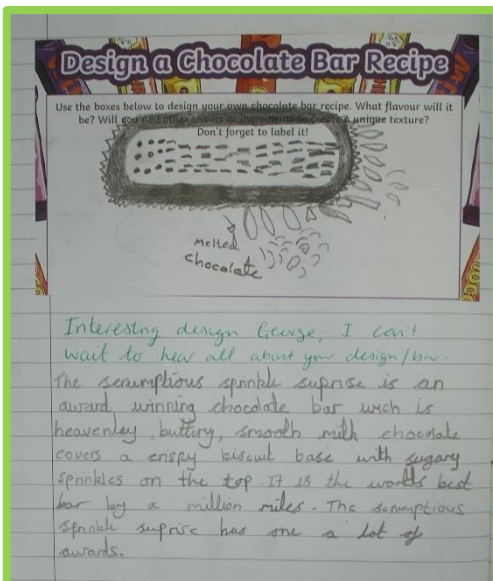 Design a Chocolate Bar Recipe
Use the boxes below to design your own chocolate bar recipe. What flavour will it
be? Will you add other sweets or ingredients to create a unique texture?
Don't forget to label it!
Melted
chocolate
Interesting design George, I can't
wait to hear all about your design/bar.
The scrumptious sprinkle suprise is an
award winning chocolate bar wich is
heavenley, buttery, smooth milk chocolate
covers a crispy biscuit base with sugary
sprinkles on the top. It is the worlds best
bar by a million miles. The scrumptious
sprinkle suprise has one a lot of
awards.